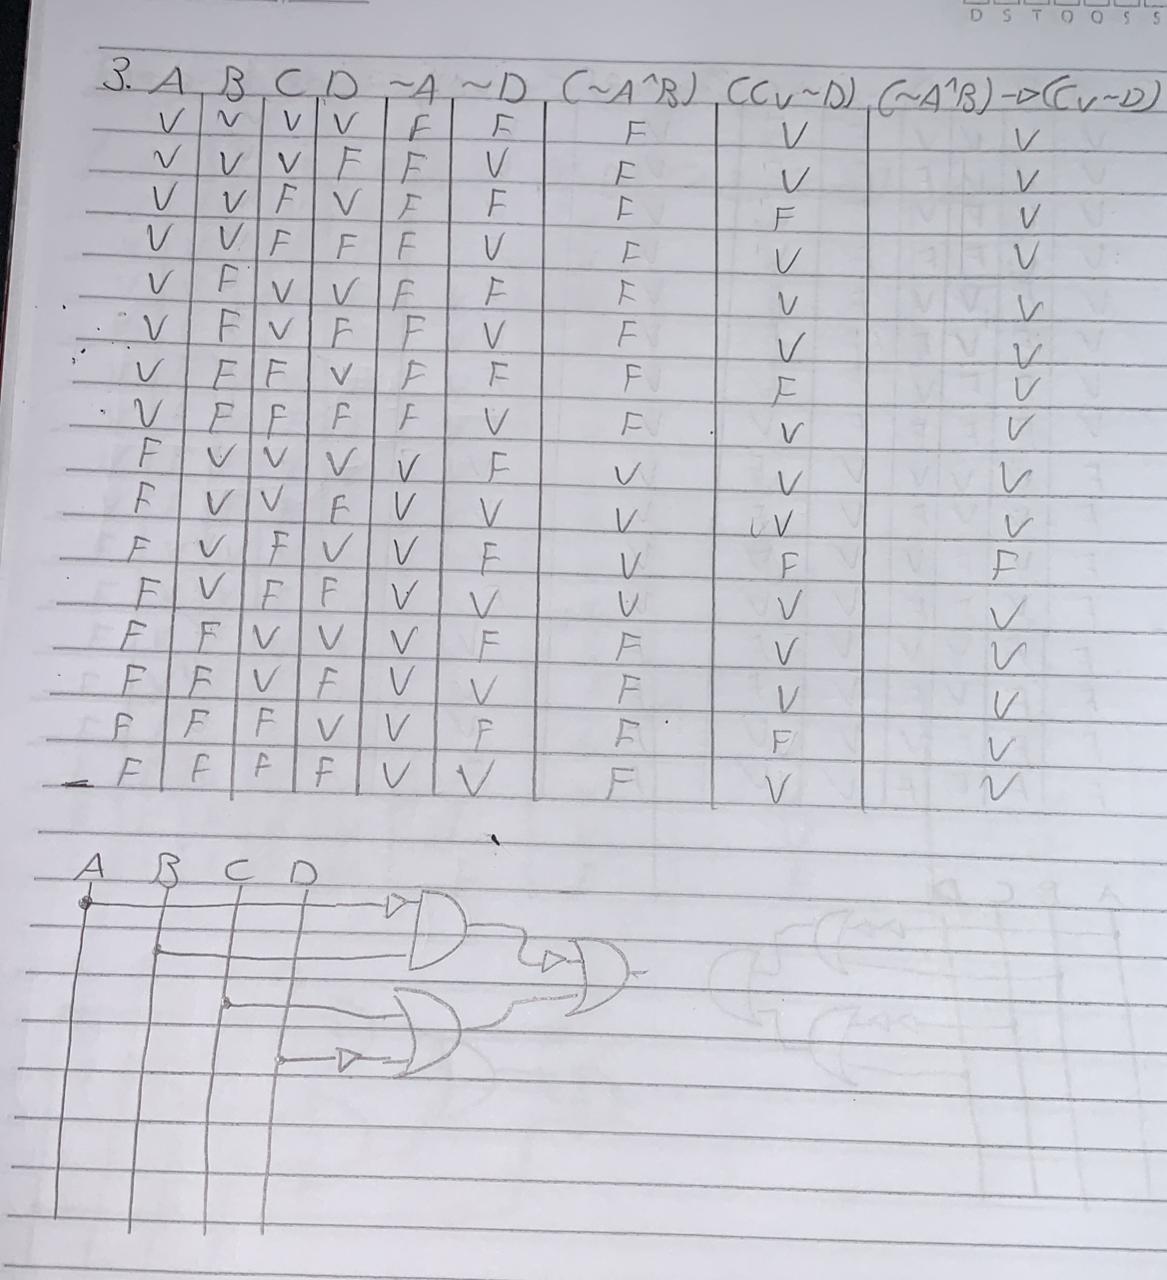 D S T Q Q S S
3. A B C D ~A ~D (~A^B) (Cv~D) (~A^B)→(Cv~D)
V V V V F F F V V
V V V F F V F V V
V V F V F F F F V
V V F F F V F V V
V F V V F F F V V
V F V F F V F V V
V F F V F F F F V
V F F F F V F V V
F V V V V F V V V
F V V F V V V V V
F V F V V F V F F
F V F F V V V V V
F F V V V F F V V
F F V F V V F V V
F F F V V F F F V
F F F F V V F V V
A B C D